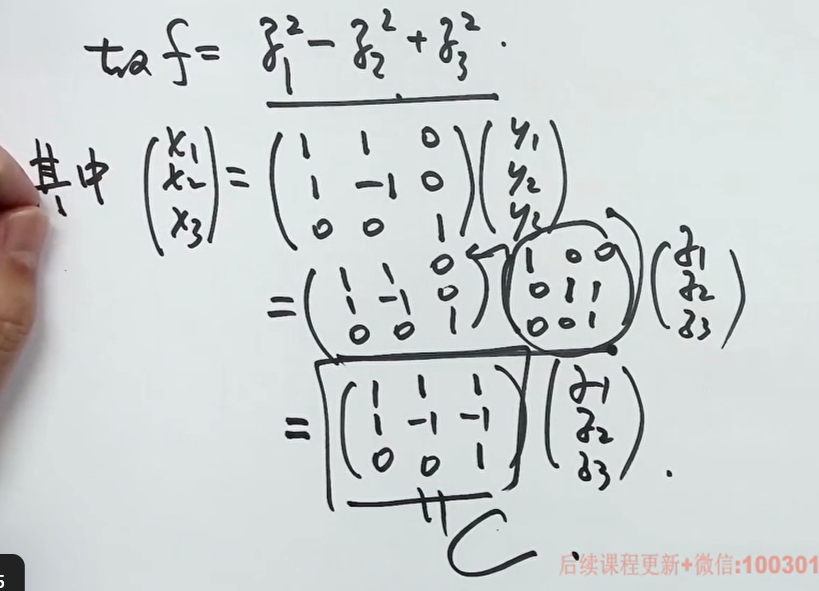 故 f = z₁² − z₂² + z₃².
其中 (x₁ x₂ x₃) = (1 1 0 / 1 −1 0 / 0 0 1) (y₁ y₂ y₃)
= (1 1 0 / 1 −1 0 / 0 0 1) (1 0 0 / 0 1 1 / 0 0 1) (z₁ z₂ z₃)
= (1 1 1 / 1 −1 −1 / 0 0 1) (z₁ z₂ z₃).
= C.
后续课程更新+微信:100301
5